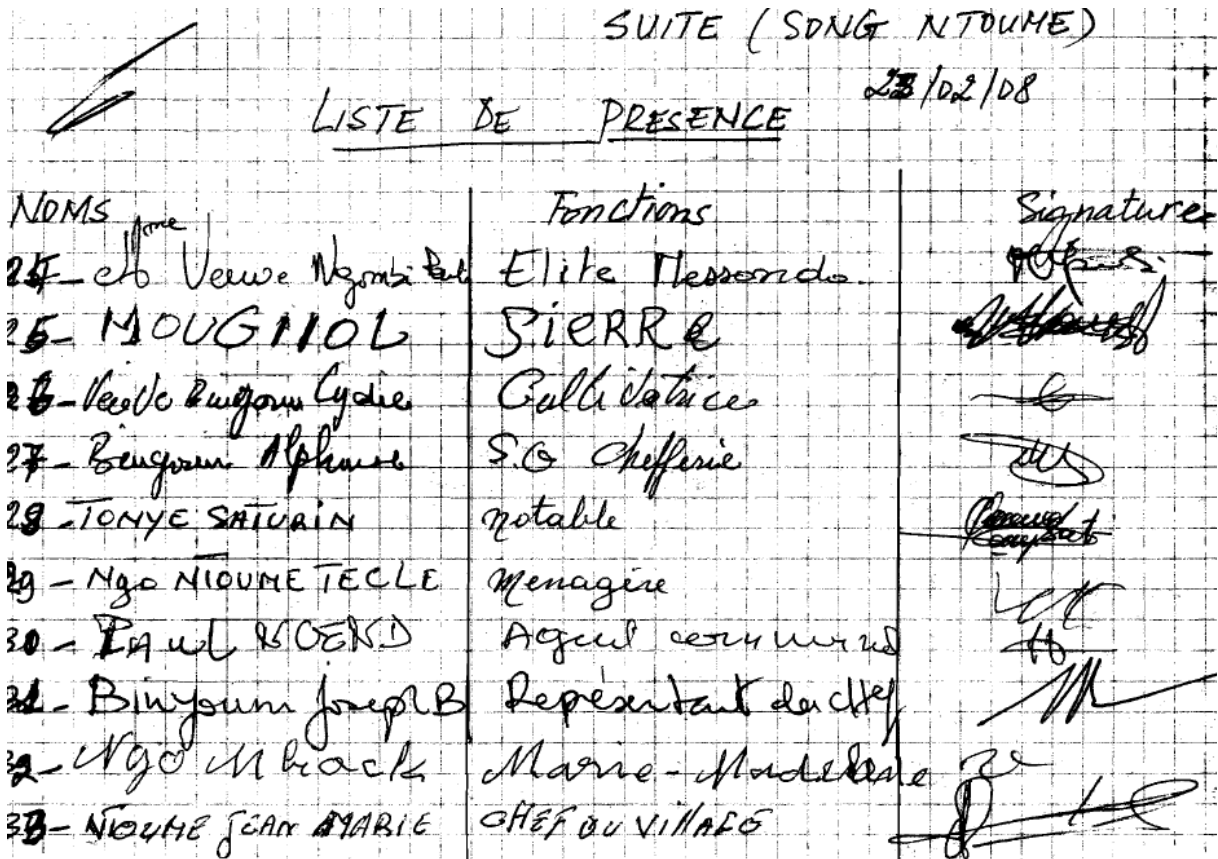 SUITE (SONG NTOUME)
23/02/08
LISTE DE PRESENCE
NOMS Fonctions Signatures
24- Mme Veuve Ngombi Elite Messondo
25- MOUGNOL PiERRe
26- Veuve Bingoum Lydie Cultivatrice
27- Bengoum Alphonse S.G Chefferie
28- TONYE SATURIN notable
29- Ngo NTOUME TECLE Menagère
30- PAUL NGEND Agent communal
31- Binyoum Joseph B Représentant du chef
32- Ngo Mback Marie-Madeleine
33- NTOUME JEAN MARIE CHEF DU VILLAGE